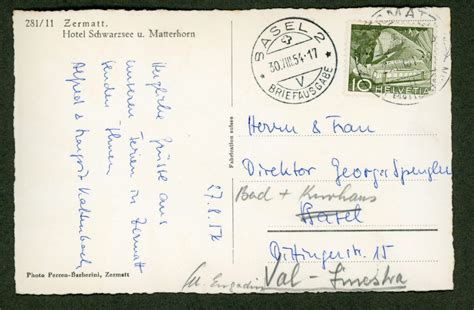 281/11 Zermatt.
Hotel Schwarzsee u. Matterhorn
Herzliche Grüsse aus
unseren Ferien in Zermatt
senden Ihnen
Alfred &
27.8.54
Photo Perren-Barberini, Zermatt
Fabrication suisse
BASEL 2
30.VIII.54-17
V
BRIEFAUSGABE
10 HELVETIA
Herrn & Frau
Direktor Georges Spengler
Bad + Kurhaus
Basel
15
Val-Sinestra